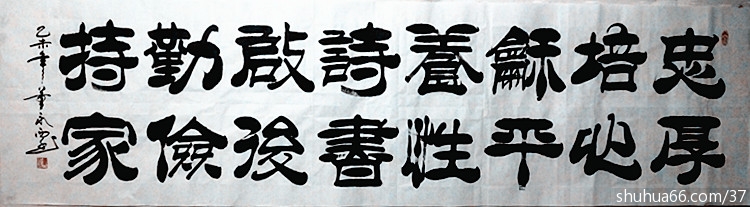 忠厚
培心
龢平
養性
詩書
啟後
勤儉
持家
乙未年
shuhua66.com/37